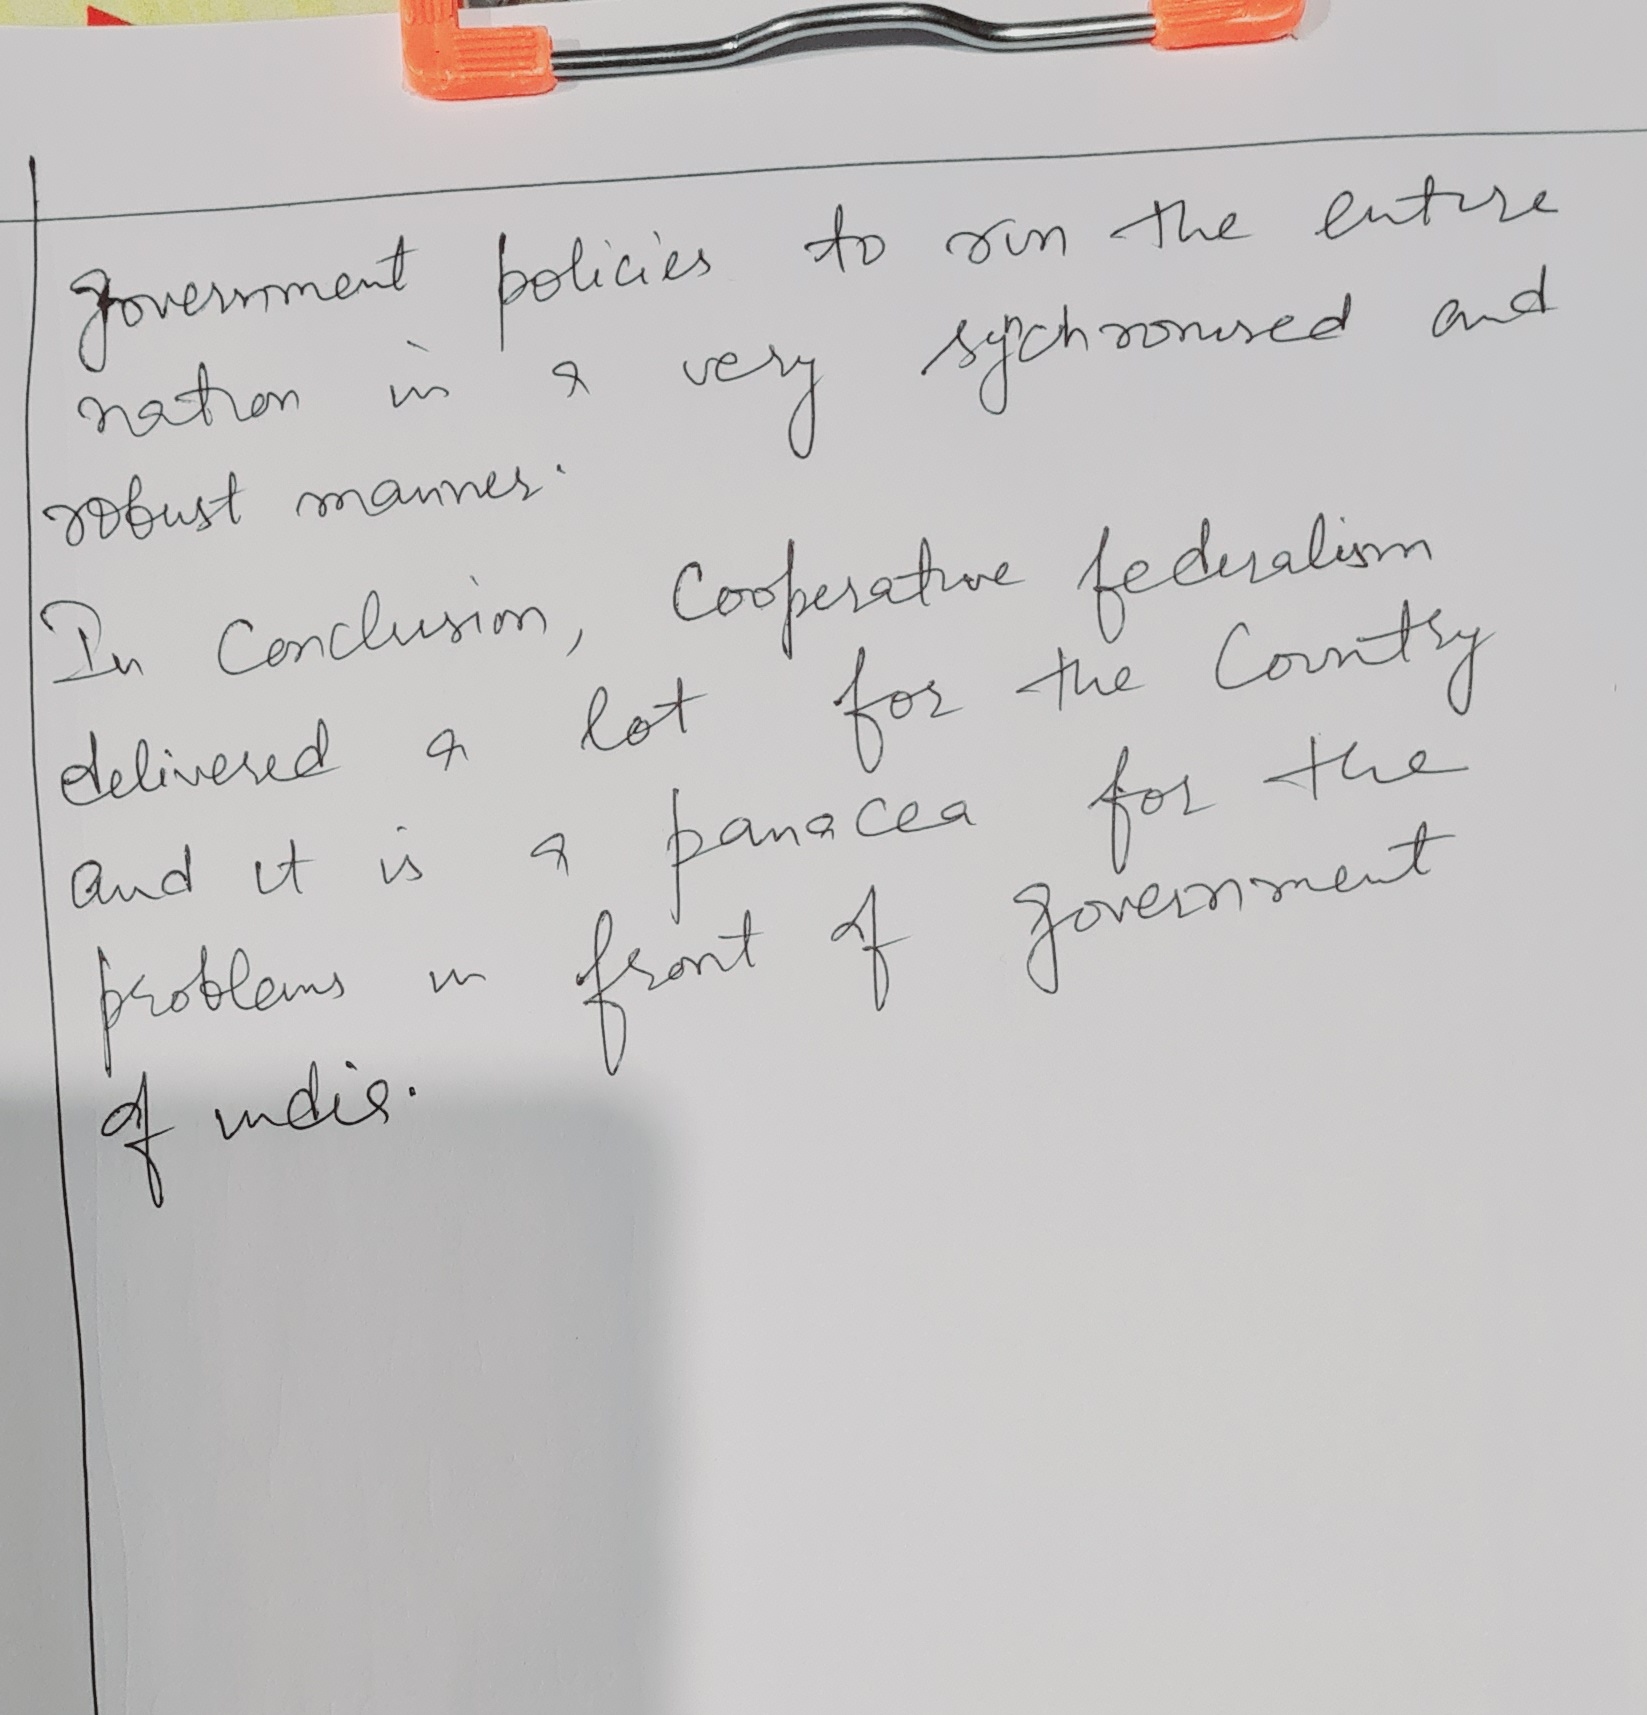 government policies to run the entire
nation in a very synchronised and
robust manner.
In Conclusion, Cooperative federalism
delivered a lot for the Country
and it is a panacea for the
problems in front of government
of india.